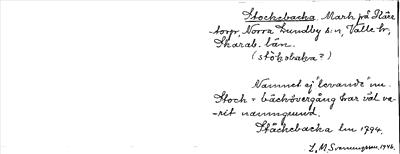 Stockabacka. Mark på Stäre
-torp, Norra Lundby s:n, Valle hr,
Skarab. län.
(stòkabaka?)
Namnet ej "levande" nu.
Stock = bäckövergång har väl va-
-rit namngrund.
Stäckebacka lm 1794.
L. M. Svenungsson. 1946.